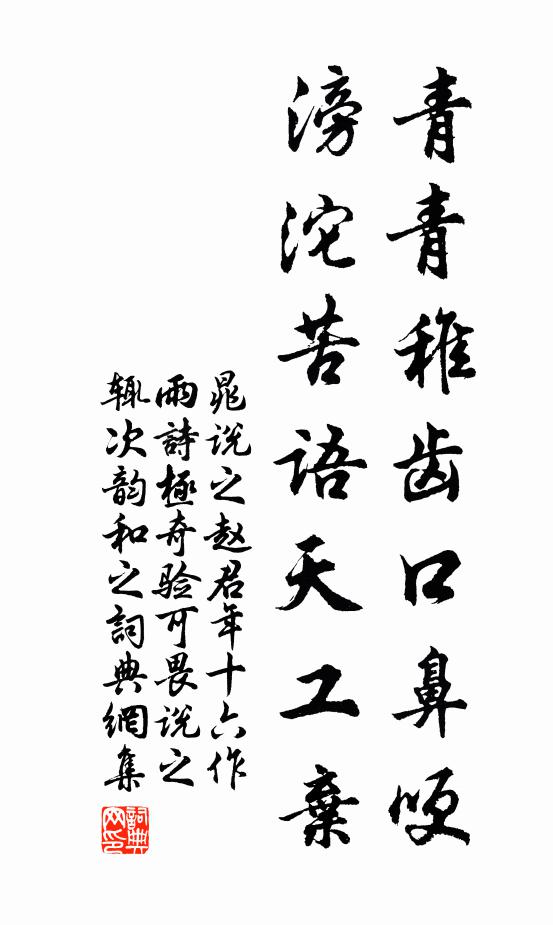 青青稚齿口鼻哽
滂沱苦語天工棄
晁说之赵君年十六作
雨詩極奇验可畏说之
辄次韵和之詞典網集
詞典
网印